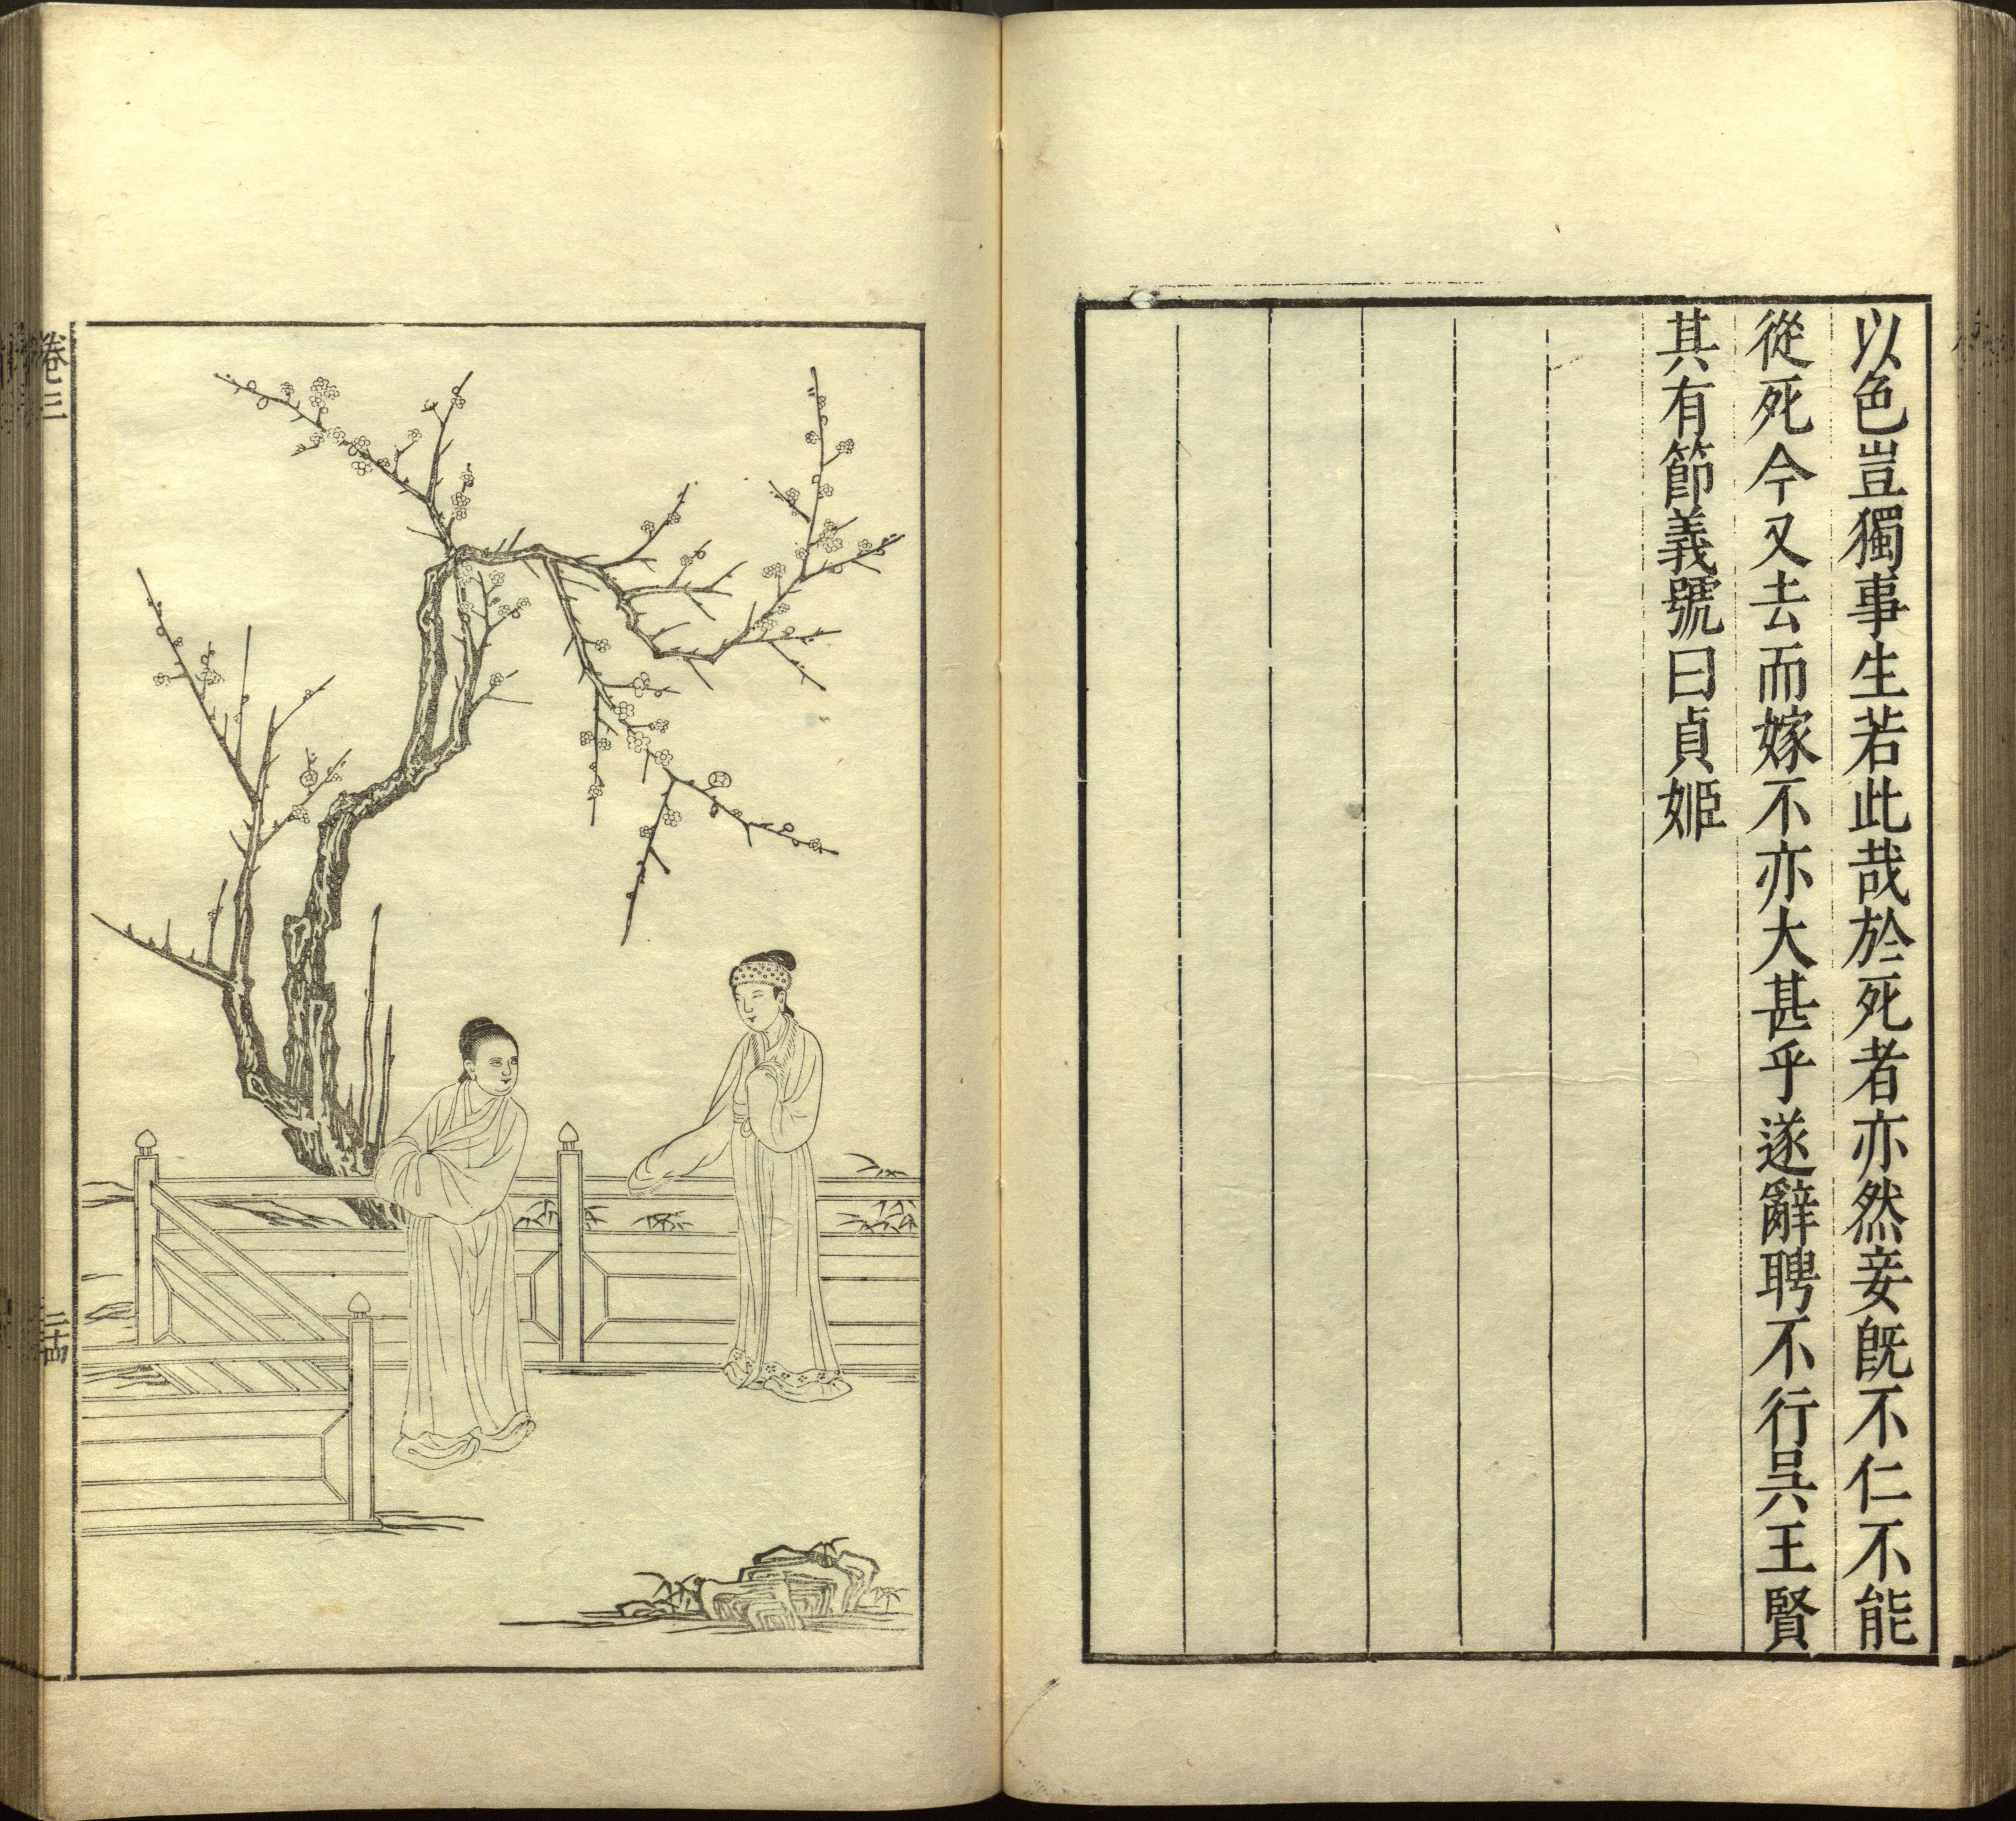 以色豈獨事生若此哉於死者亦然妾旣不仁不能
從死今又去而嫁不亦大甚乎遂辭聘不行吳王賢
其有節義號曰貞姬
卷三
二十四